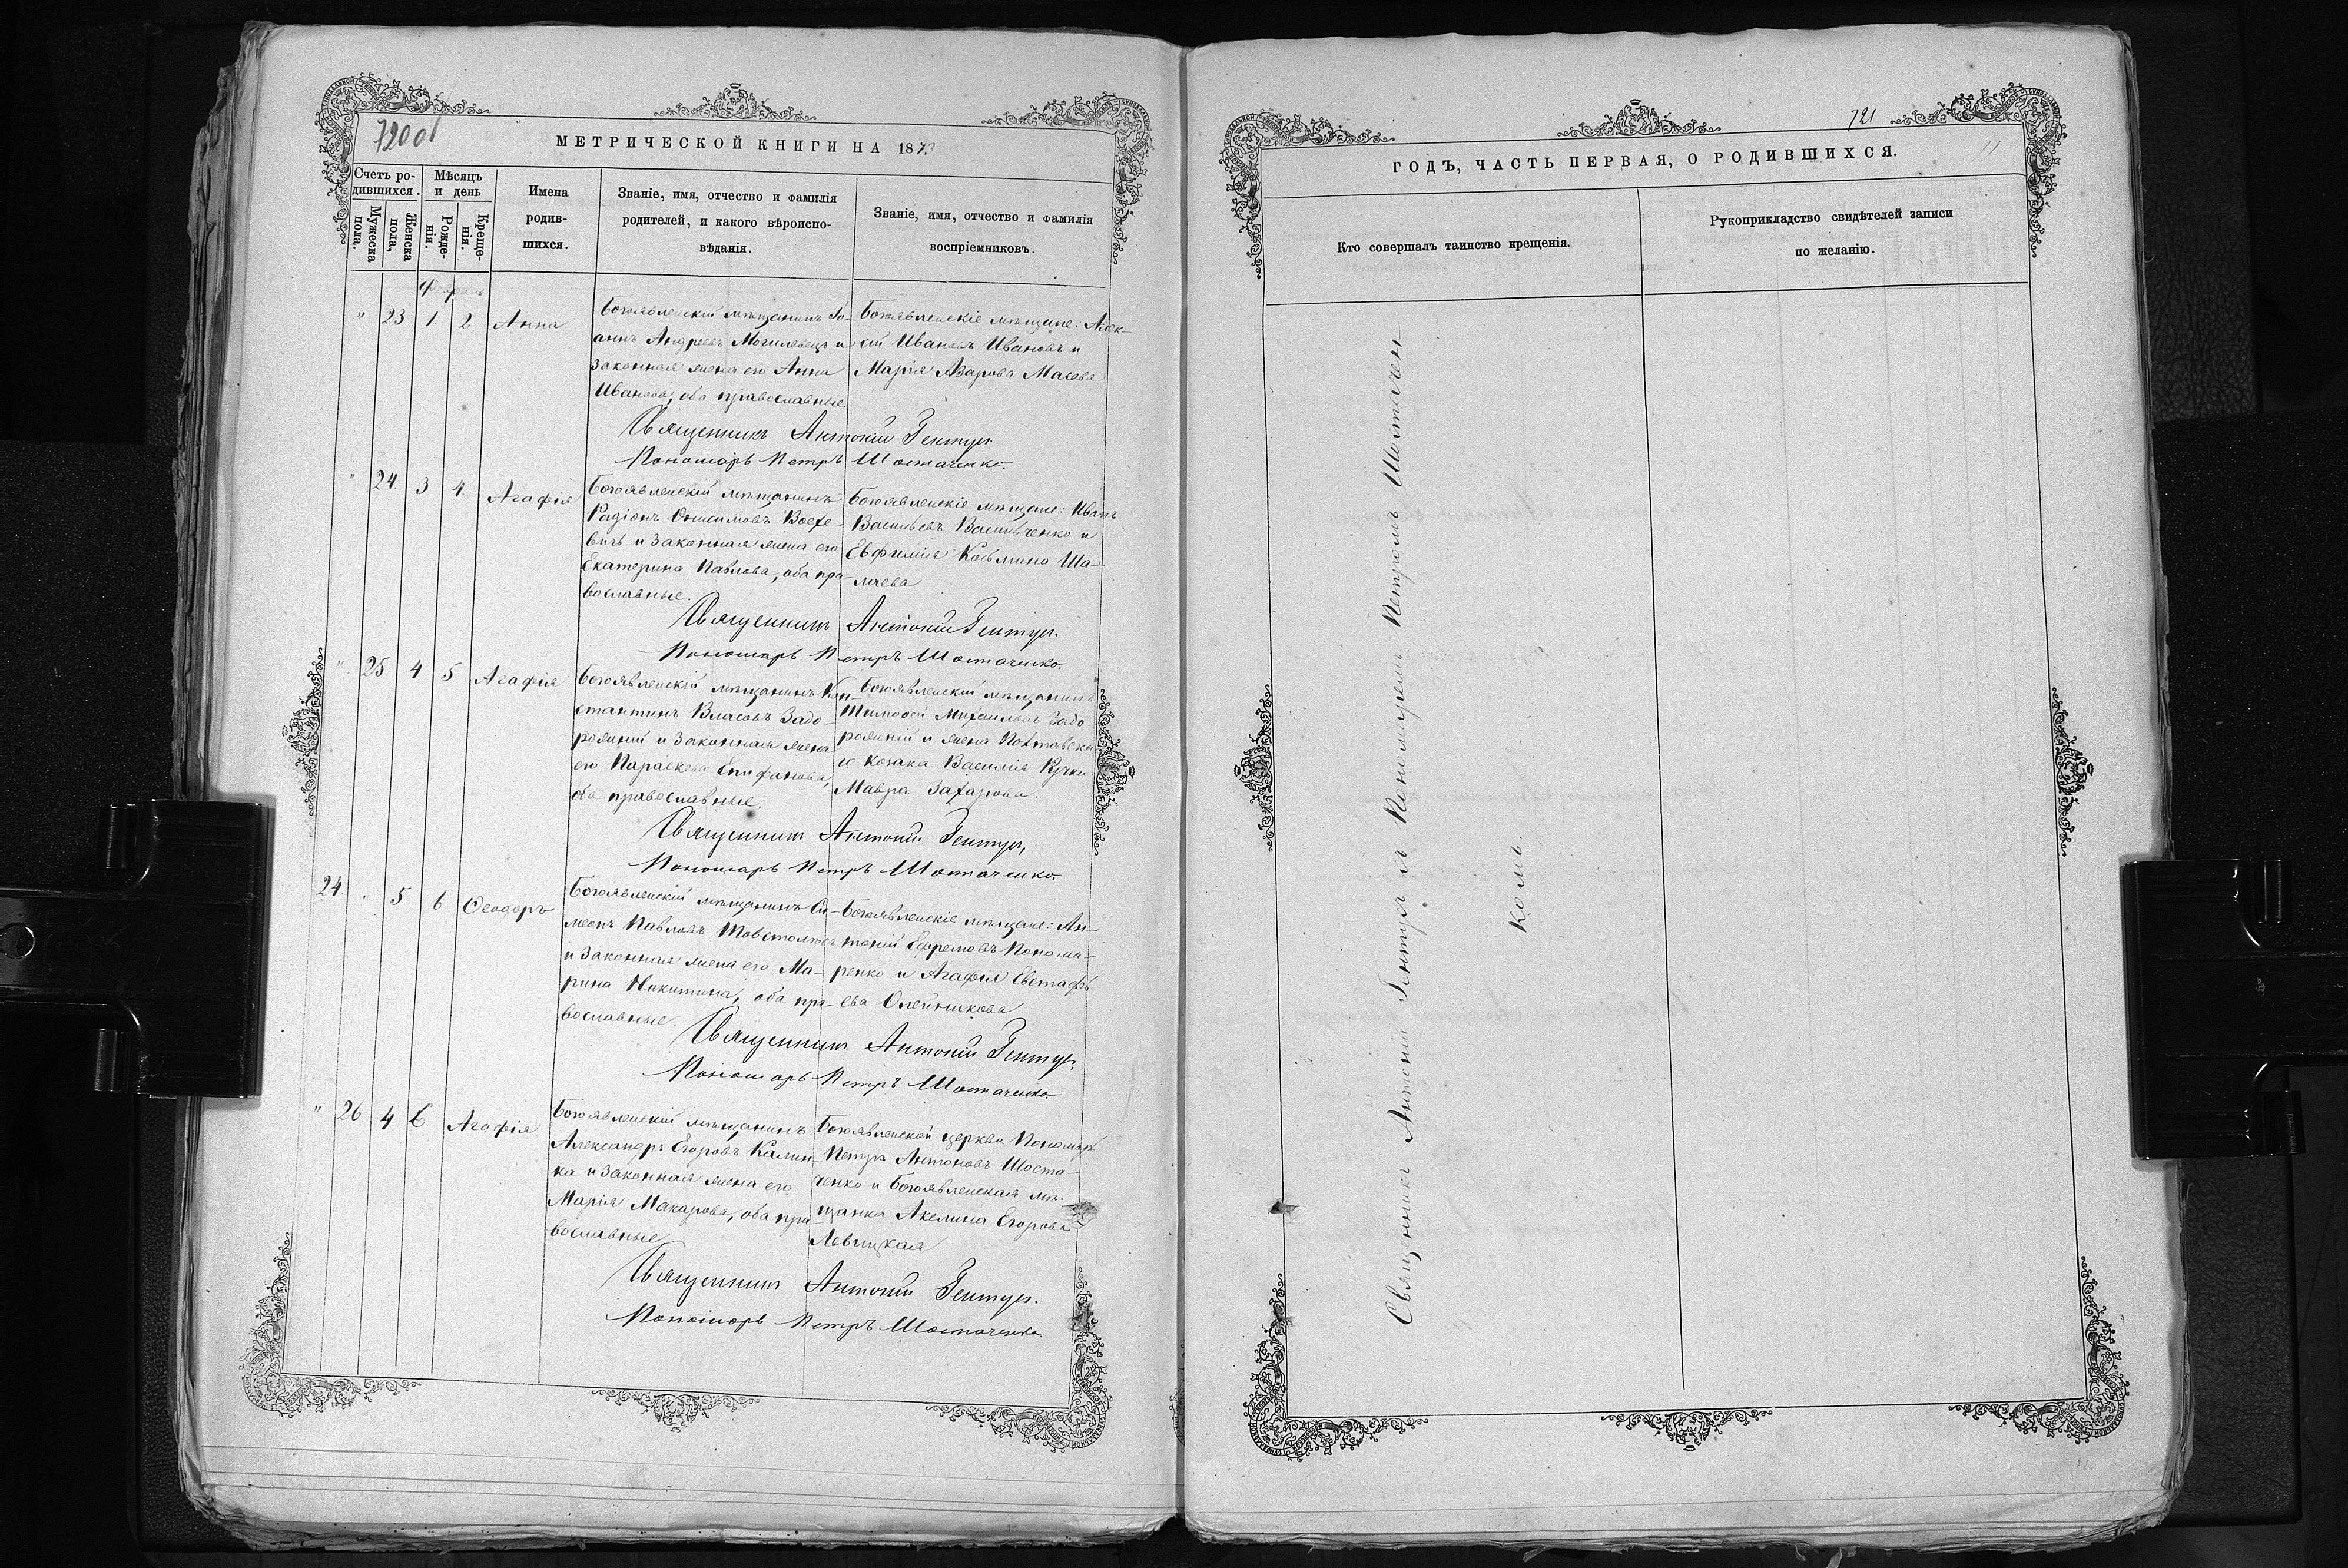 720об
МЕТРИЧЕСКОЙ КНИГИ НА 1873
Счетъ ро-
дившихся.
Мужеска
пола.
Женска
пола,
Мѣсяцъ
и день
Рожде-
нія.
Креще-
нія.
Имена
родив-
шихся.
Званіе, имя, отчество и фамилія
родителей, и какого вѣроиспо-
вѣданія.
Званіе, имя, отчество и фамилія
воспріемниковъ.
Февраль
" 23 1. 2 Анна
Богоявленскій мѣщанинъ Іо-
аннъ Андреевъ Могилевецъ и
законная жена его Анна
Иванова, оба православные.
Богоявленскіе мѣщане: Алек-
сій Ивановъ Ивановъ и
Марія Азарова Масова
Священникъ Антоній Гентуш
Пономарь Петръ Шостаченко.
" 24 3 4 Агафія
Богоявленскій мѣщанинъ
Радіонъ Онисимовъ
и законная жена его
Екатерина Павлова, оба пра-
вославные.
Богоявленскіе мѣщане: Иванъ
Васильевъ Васильченко и
Евфимія Козьмина Ша-
лаева
Священникъ Антоній Гентуш.
Пономарь Петръ Шостаченко.
" 25 4 5 Агафія
Богоявленскій мѣщанинъ Кон-
стантинъ Власовъ Задо-
рожній и законная жена
его Параскева Епифанова,
оба православные.
Богоявленскій мѣщанинъ
Тимофей Михаиловъ Задо
рожній и жена Полтавска
го козака Василія Кучки
Мавра Захарова.
Священникъ Антоній Гентуш,
Пономарь Петръ Шостаченко.
24 " 5 6 Ѳеодоръ
Богоявленскій мѣщанинъ Си-
меонъ Павловъ Товстолюсъ
и законная жена его Ма-
рина Никитина, оба пра-
вославные.
Богоявленскіе мѣщане: Ан-
тоній Ефремовъ Понома-
ренко и Агафія Евстафь
ева Олейникова
Священникъ Антоній Гентуш.
Пономарь Петръ Шостаченко.
" 26 4 6 Агафія
Богоявленскій мѣщанинъ
Александръ Егоровъ Калин-
ка и законная жена его
Марія Макарова, оба пра
вославные
Богоявленской церкви Пономарь
Петръ Антоновъ Шоста-
ченко и Богоявленская мѣ-
щанка Акелина Егорова
Левицкая
Священникъ Антоній Гентуш.
Пономарь Петръ Шостаченко
721
11
ГОДЪ, ЧАСТЬ ПЕРВАЯ, О РОДИВШИХСЯ.
Кто совершалъ таинство крещенія.
Рукоприкладство свидѣтелей записи
по желанію.
Священникъ Антоній Гентуш съ Пономаремъ Петромъ Шостачен
комъ.